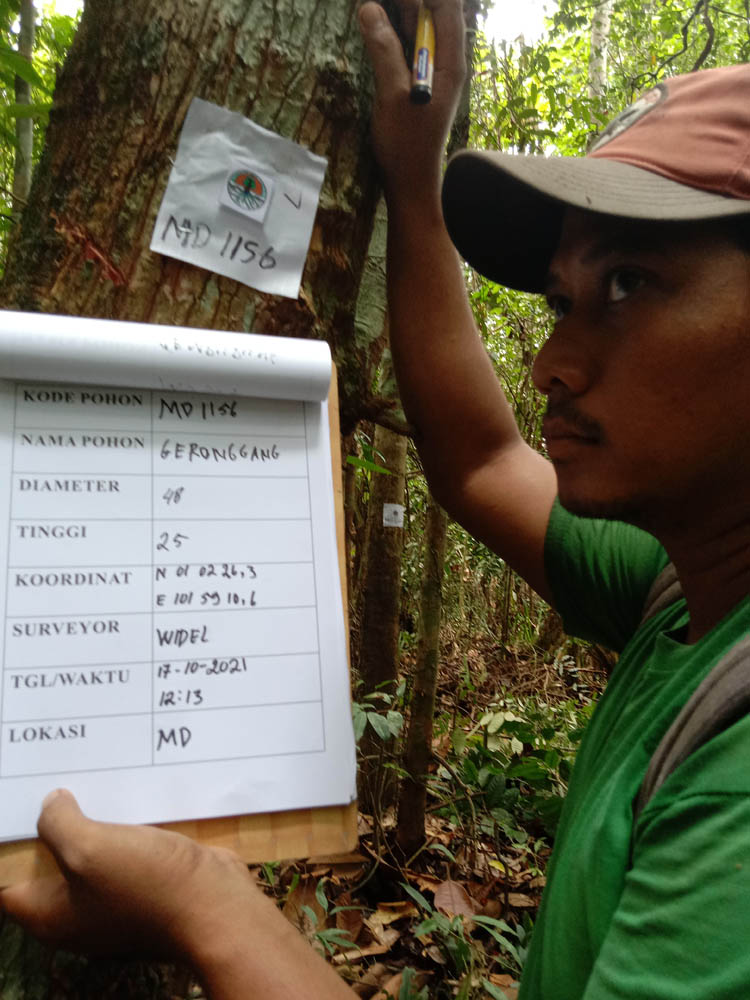 MD 1156
KODE POHON MD 1156
NAMA POHON GERONGGANG
DIAMETER 48
TINGGI 25
KOORDINAT N 01 02 26,3
E 101 59 10,6
SURVEYOR WIDEL
TGL/WAKTU 17-10-2021
12:13
LOKASI MD